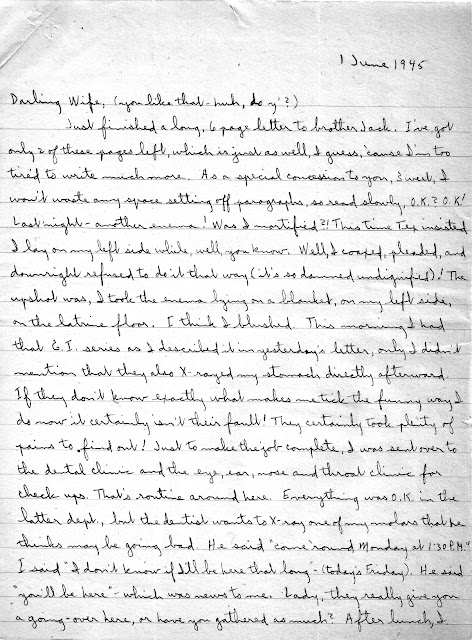 1 June 1945
Darling Wife, (you like that - huh, do y'?)
Just finished a long, 6 page letter to brother Jack. I've got
only 2 of these pages left, which is just as well, I guess, 'cause I'm too
tired to write much more. As a special concession to you, Sweet, I
won't waste any space setting off paragraphs, so read slowly, O.K.? O.K!
Last night - another enema! Was I mortified?! This time Tex insisted
I lay on my left side while, well, you know. Well, I coaxed, pleaded, and
downright refused to do it that way (it's so damned undignified)! The
upshot was, I took the enema lying on a blanket, on my left side,
on the latrine floor. I think I blushed. This morning I had
that G.I. series as I described it in yesterday's letter, only I didn't
mention that they also X-rayed my stomach directly afterward.
If they don't know exactly what makes me tick the funny way I
do now it certainly isn't their fault! They certainly took plenty of
pains to find out! Just to make the job complete, I was sent over to
the dental clinic and the eye, ear, nose and throat clinic for
check ups. That's routine around here. Everything was O.K. in the
latter dept., but the dentist wants to X-ray one of my molars that he
thinks may be going bad. He said "come 'round Monday at 1:30 P.M."
I said "I don't know if I'll be here that long" - (today's Friday). He said
"you'll be here" - which was news to me. Lady, they really give you
a going-over here, or have you gathered as much? After lunch, I